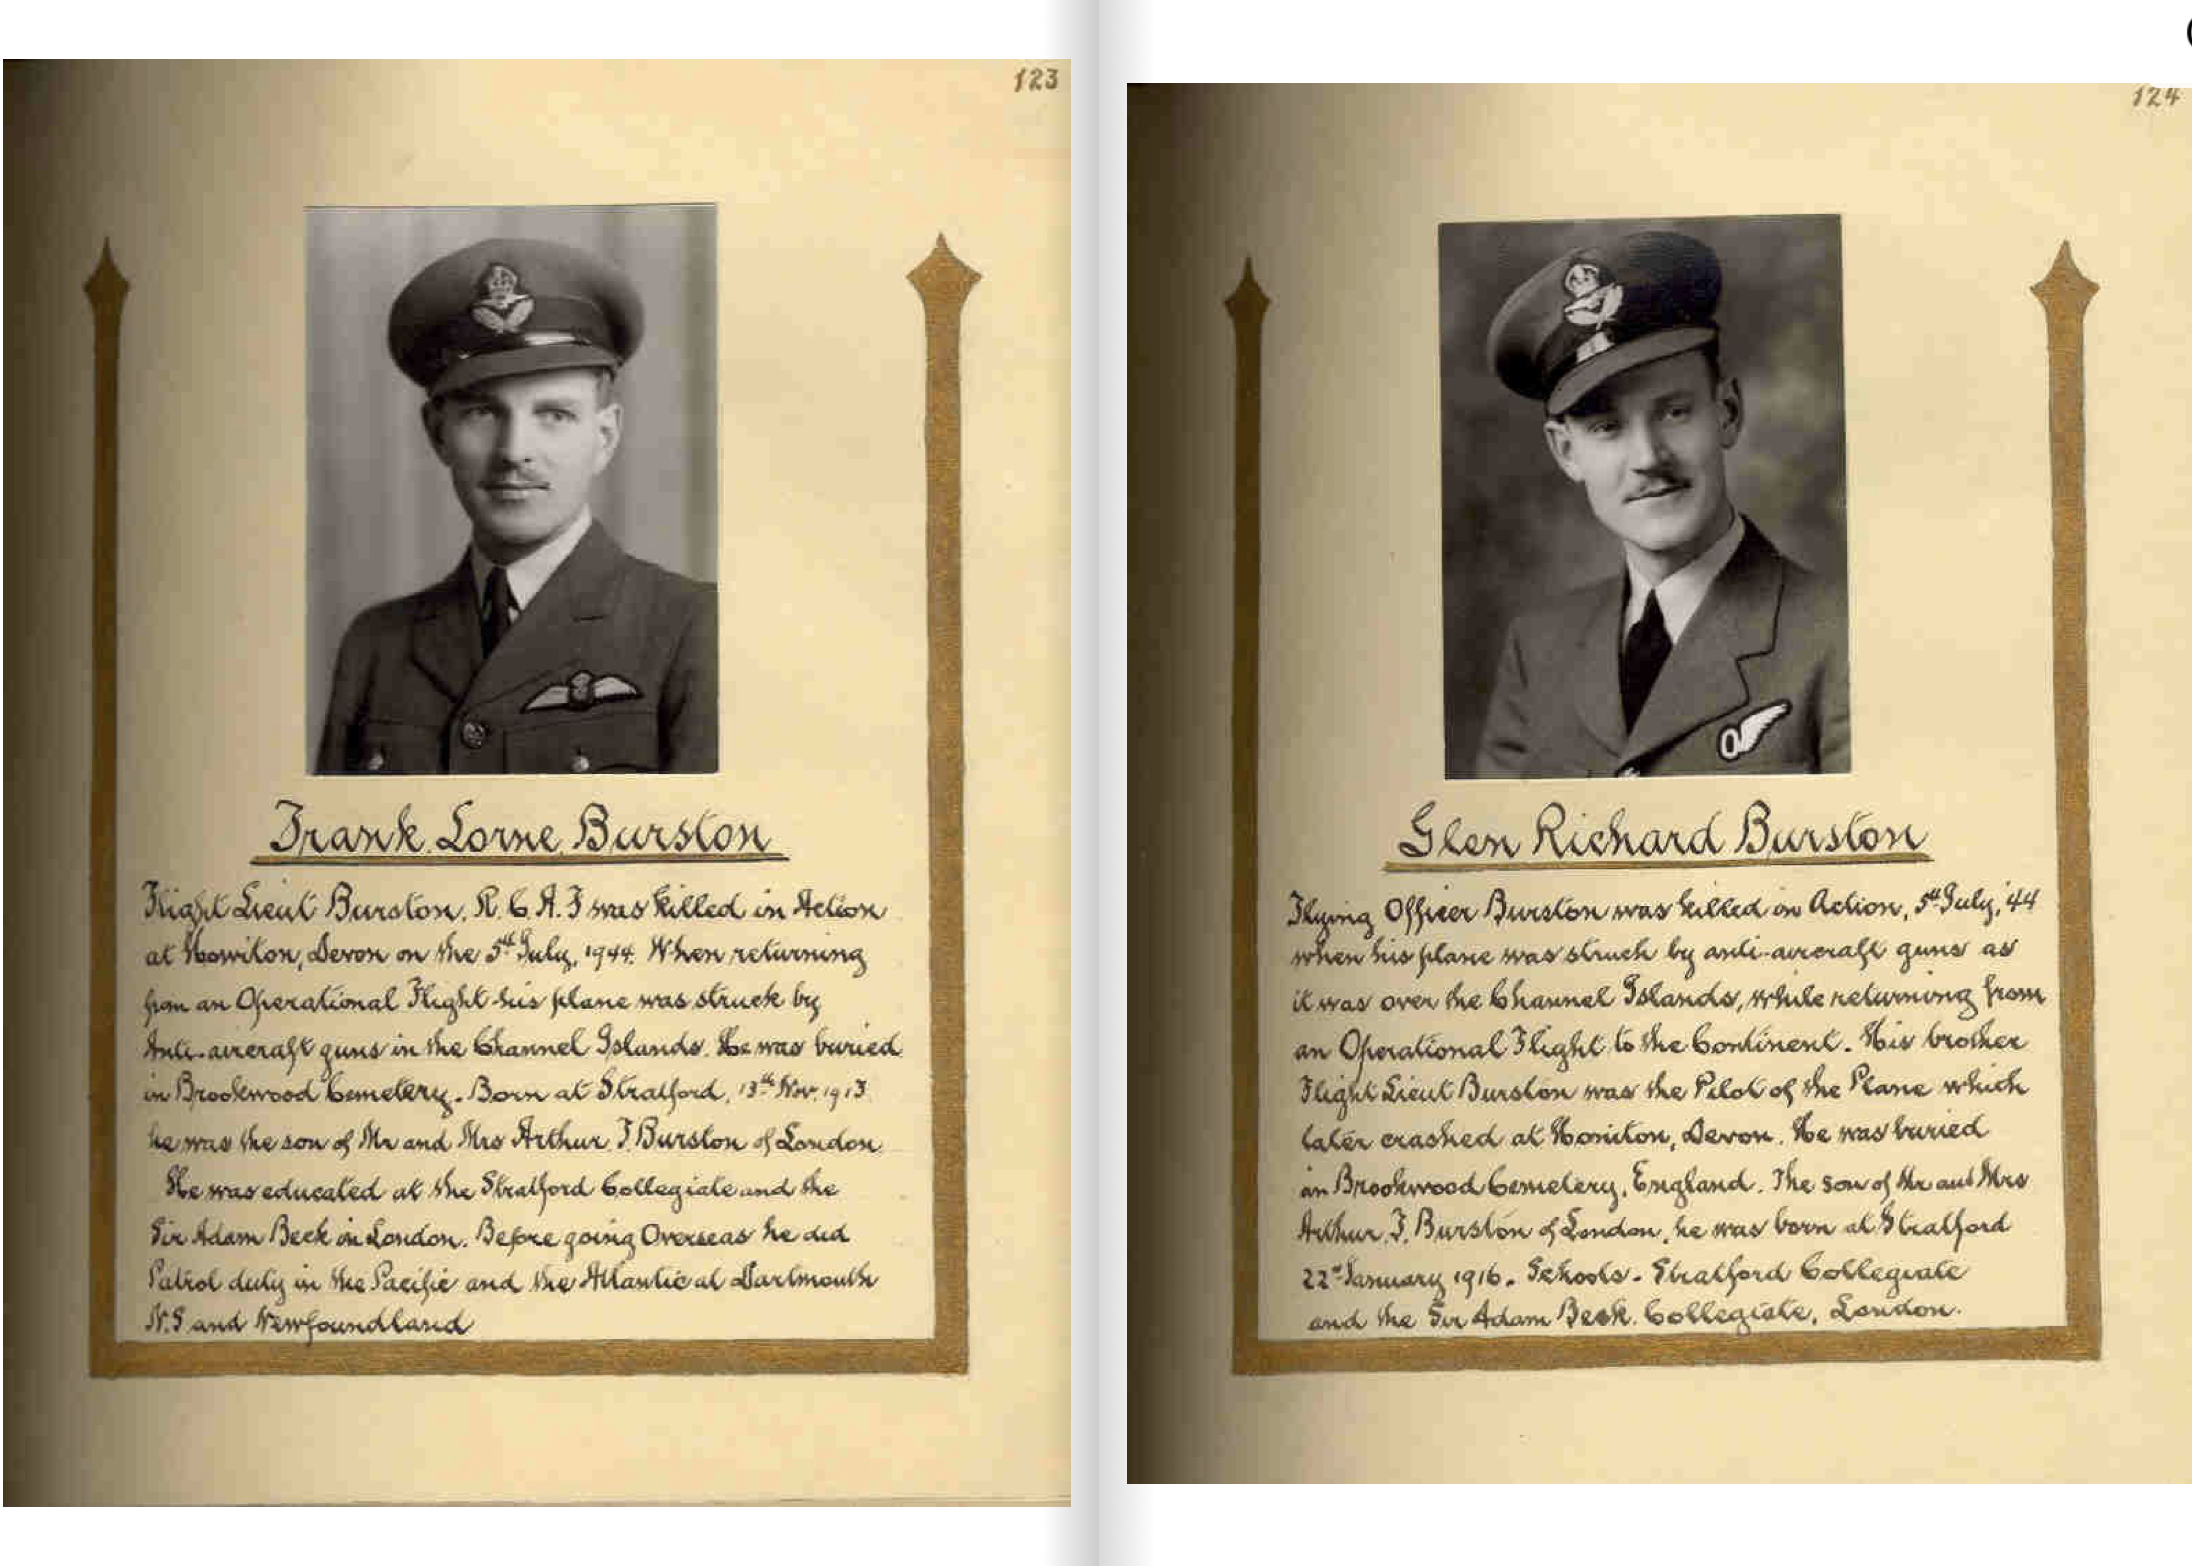 123
Frank Lorne Burston
Flight Lieut Burston, R.C.A.F was Killed in Action
at Honiton, Devon on the 5th July, 1944. When returning
from an Operational Flight his plane was struck by
Anti-aircraft guns in the Channel Islands. He was buried
in Brookwood Cemetery. Born at Stratford, 13th Nov. 1913
he was the son of Mr and Mrs Arthur F Burston of London
He was educated at the Stratford Collegiate and the
Sir Adam Beck in London. Before going Overseas he did
Patrol duty in the Pacific and the Atlantic at Dartmouth
N.S and Newfoundland
124
Glen Richard Burston
Flying Officer Burston was killed in Action, 5th July, '44
when his plane was struck by anti-aircraft guns as
it was over the Channel Islands, while returning from
an Operational Flight to the Continent. His brother
Flight Lieut Burston was the Pilot of the Plane which
later crashed at Honiton, Devon. He was buried
in Brookwood Cemetery, England. The son of Mr and Mrs
Arthur F. Burston of London, he was born at Stratford
22nd January 1916. Schools - Stratford Collegiate
and the Sir Adam Beck Collegiate, London.